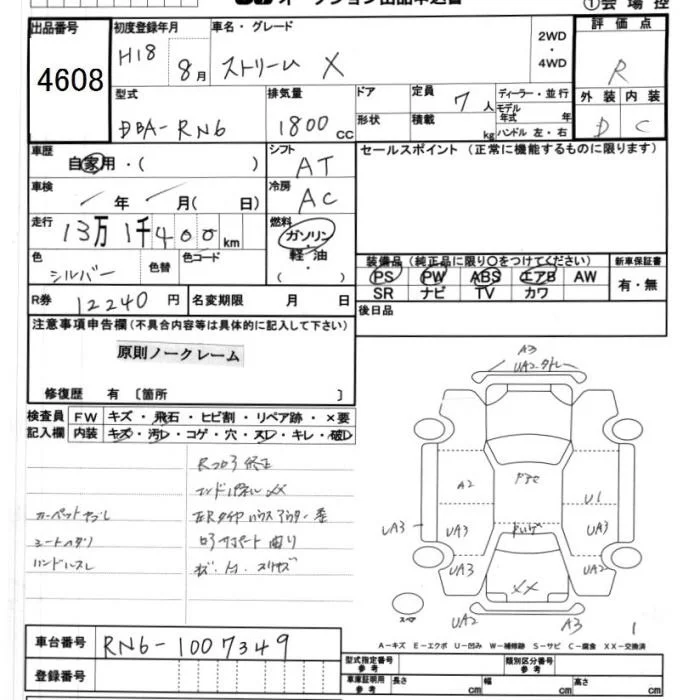 ①会場控
出品番号
4608
初度登録年月
H18 8月
車名・グレード
ストリーム X
2WD
・
4WD
評価点
R
外装 内装
D C
型式
DBA-RN6
排気量
1800 CC
ドア
形状
定員 7人
積載 kg
ディーラー・並行
モデル
年式 年
ハンドル 左・右
車歴
自家用・( )
シフト
AT
セールスポイント (正常に機能するものに限ります)
車検
年 月( 日)
冷房
AC
走行
13万1千400km
燃料
ガソリン
軽・油
・
( )
色
シルバー
色替
色コード
装備品(純正品に限り○をつけてください)
PS PW ABS エアB AW
SR ナビ TV カワ
新車保証書
有・無
R券 12240円
名変期限 月 日
後日品
注意事項申告欄(不具合内容等は具体的に記入して下さい)
原則ノークレーム
修復歴 有 〔箇所 〕
検査員
記入欄
FW キズ・飛石・ヒビ割・リペア跡・×要
内装 キズ・汚レ・コゲ・穴・スレ・キレ・破レ
Rフロア修正
エンドパネルXX
カーペットヤブレ
シートヘタリ
ハンドルスレ
A3
A2
U1
UA3
UA3
UA3
UA3
UA2
XX
スペア
UA2
A3
1
A-キズ E-エクボ U-凹み W-補修跡 S-サビ C-腐食 XX-交換済
車台番号 RN6-1007349
登録番号
型式指定番号
参考
類別区分番号
参考
車庫証明用
参考
長さ cm 幅 cm 高さ cm